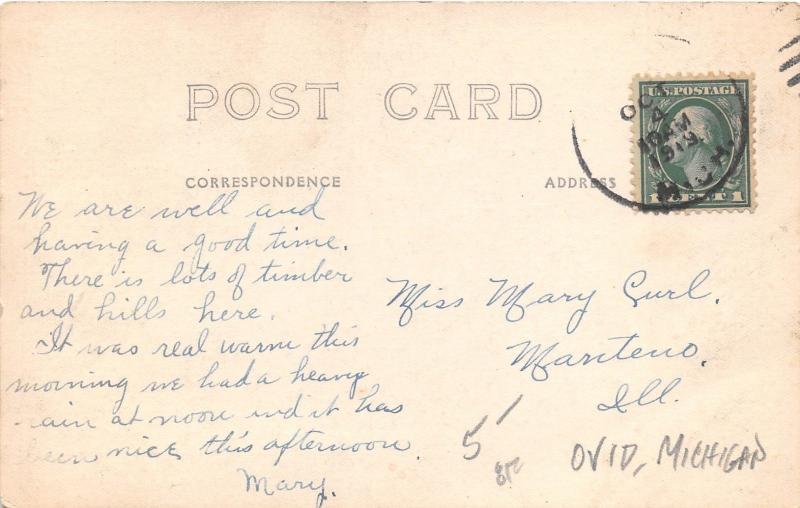 POST CARD
CORRESPONDENCE
ADDRESS
U.S. POSTAGE
1 CENT 1
OCT
4
10 AM
1919
MICH.
We are well and
having a good time.
There is lots of timber
and hills here.
It was real warm this
morning we had a heavy
rain at noon and it has
been nice this afternoon.
Mary.
Miss Mary Curl.
Manteno.
Ill.
5
OVID, MICHIGAN